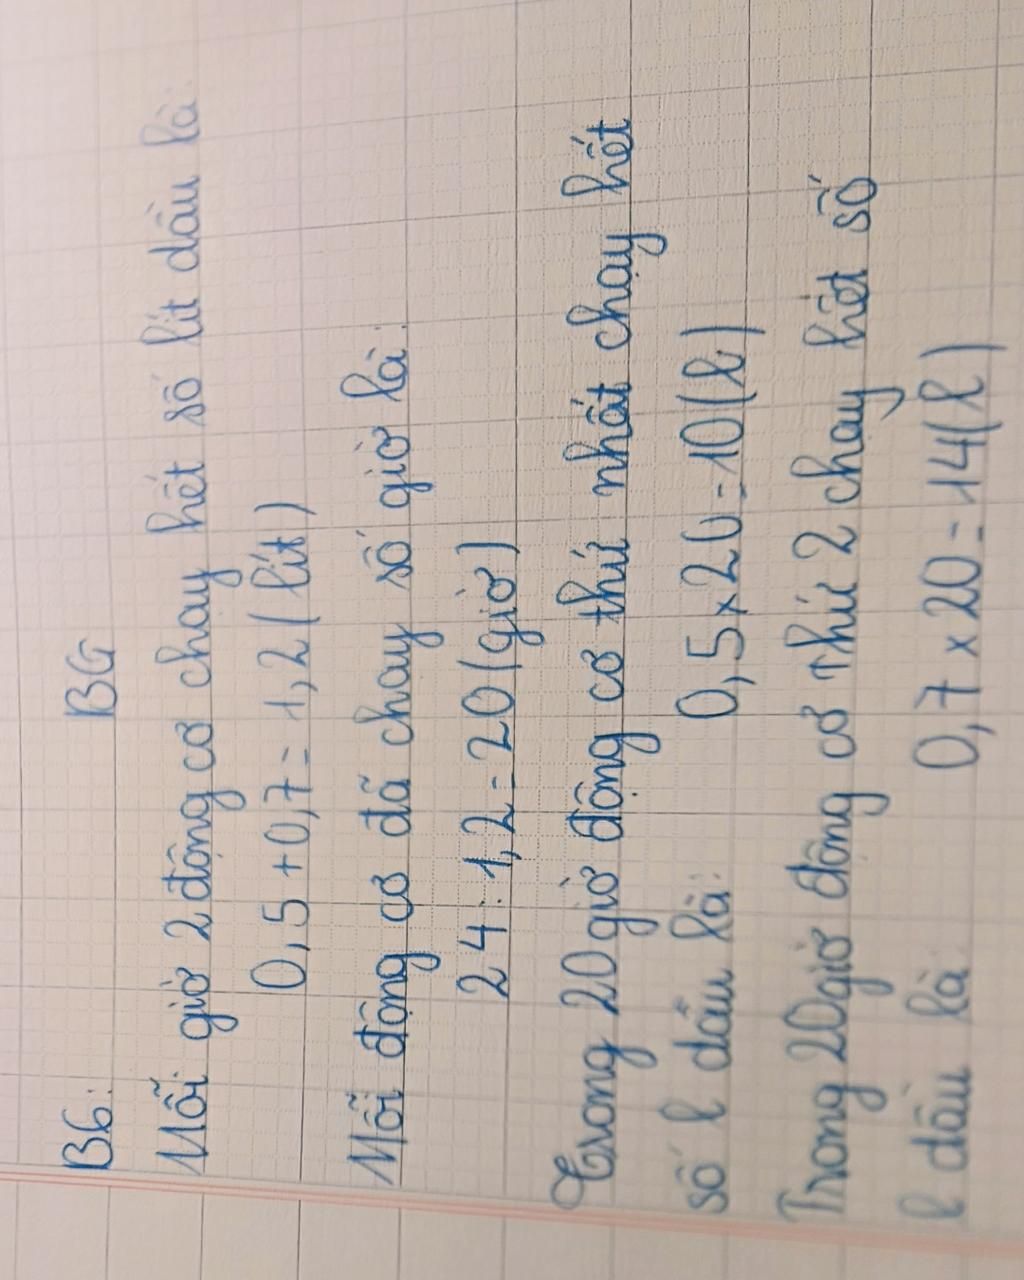 B6: BG
Mỗi giờ 2 động cơ chạy hết số lít dầu là:
0,5 + 0,7 = 1,2 (lít)
Mỗi động cơ đã chạy số giờ là:
24 : 1,2 = 20 (giờ)
Trong 20 giờ động cơ thứ nhất chạy hết
số l dầu là: 0,5 x 20 = 10 (l)
Trong 20 giờ động cơ thứ 2 chạy hết số
l dầu là: 0,7 x 20 = 14 (l)